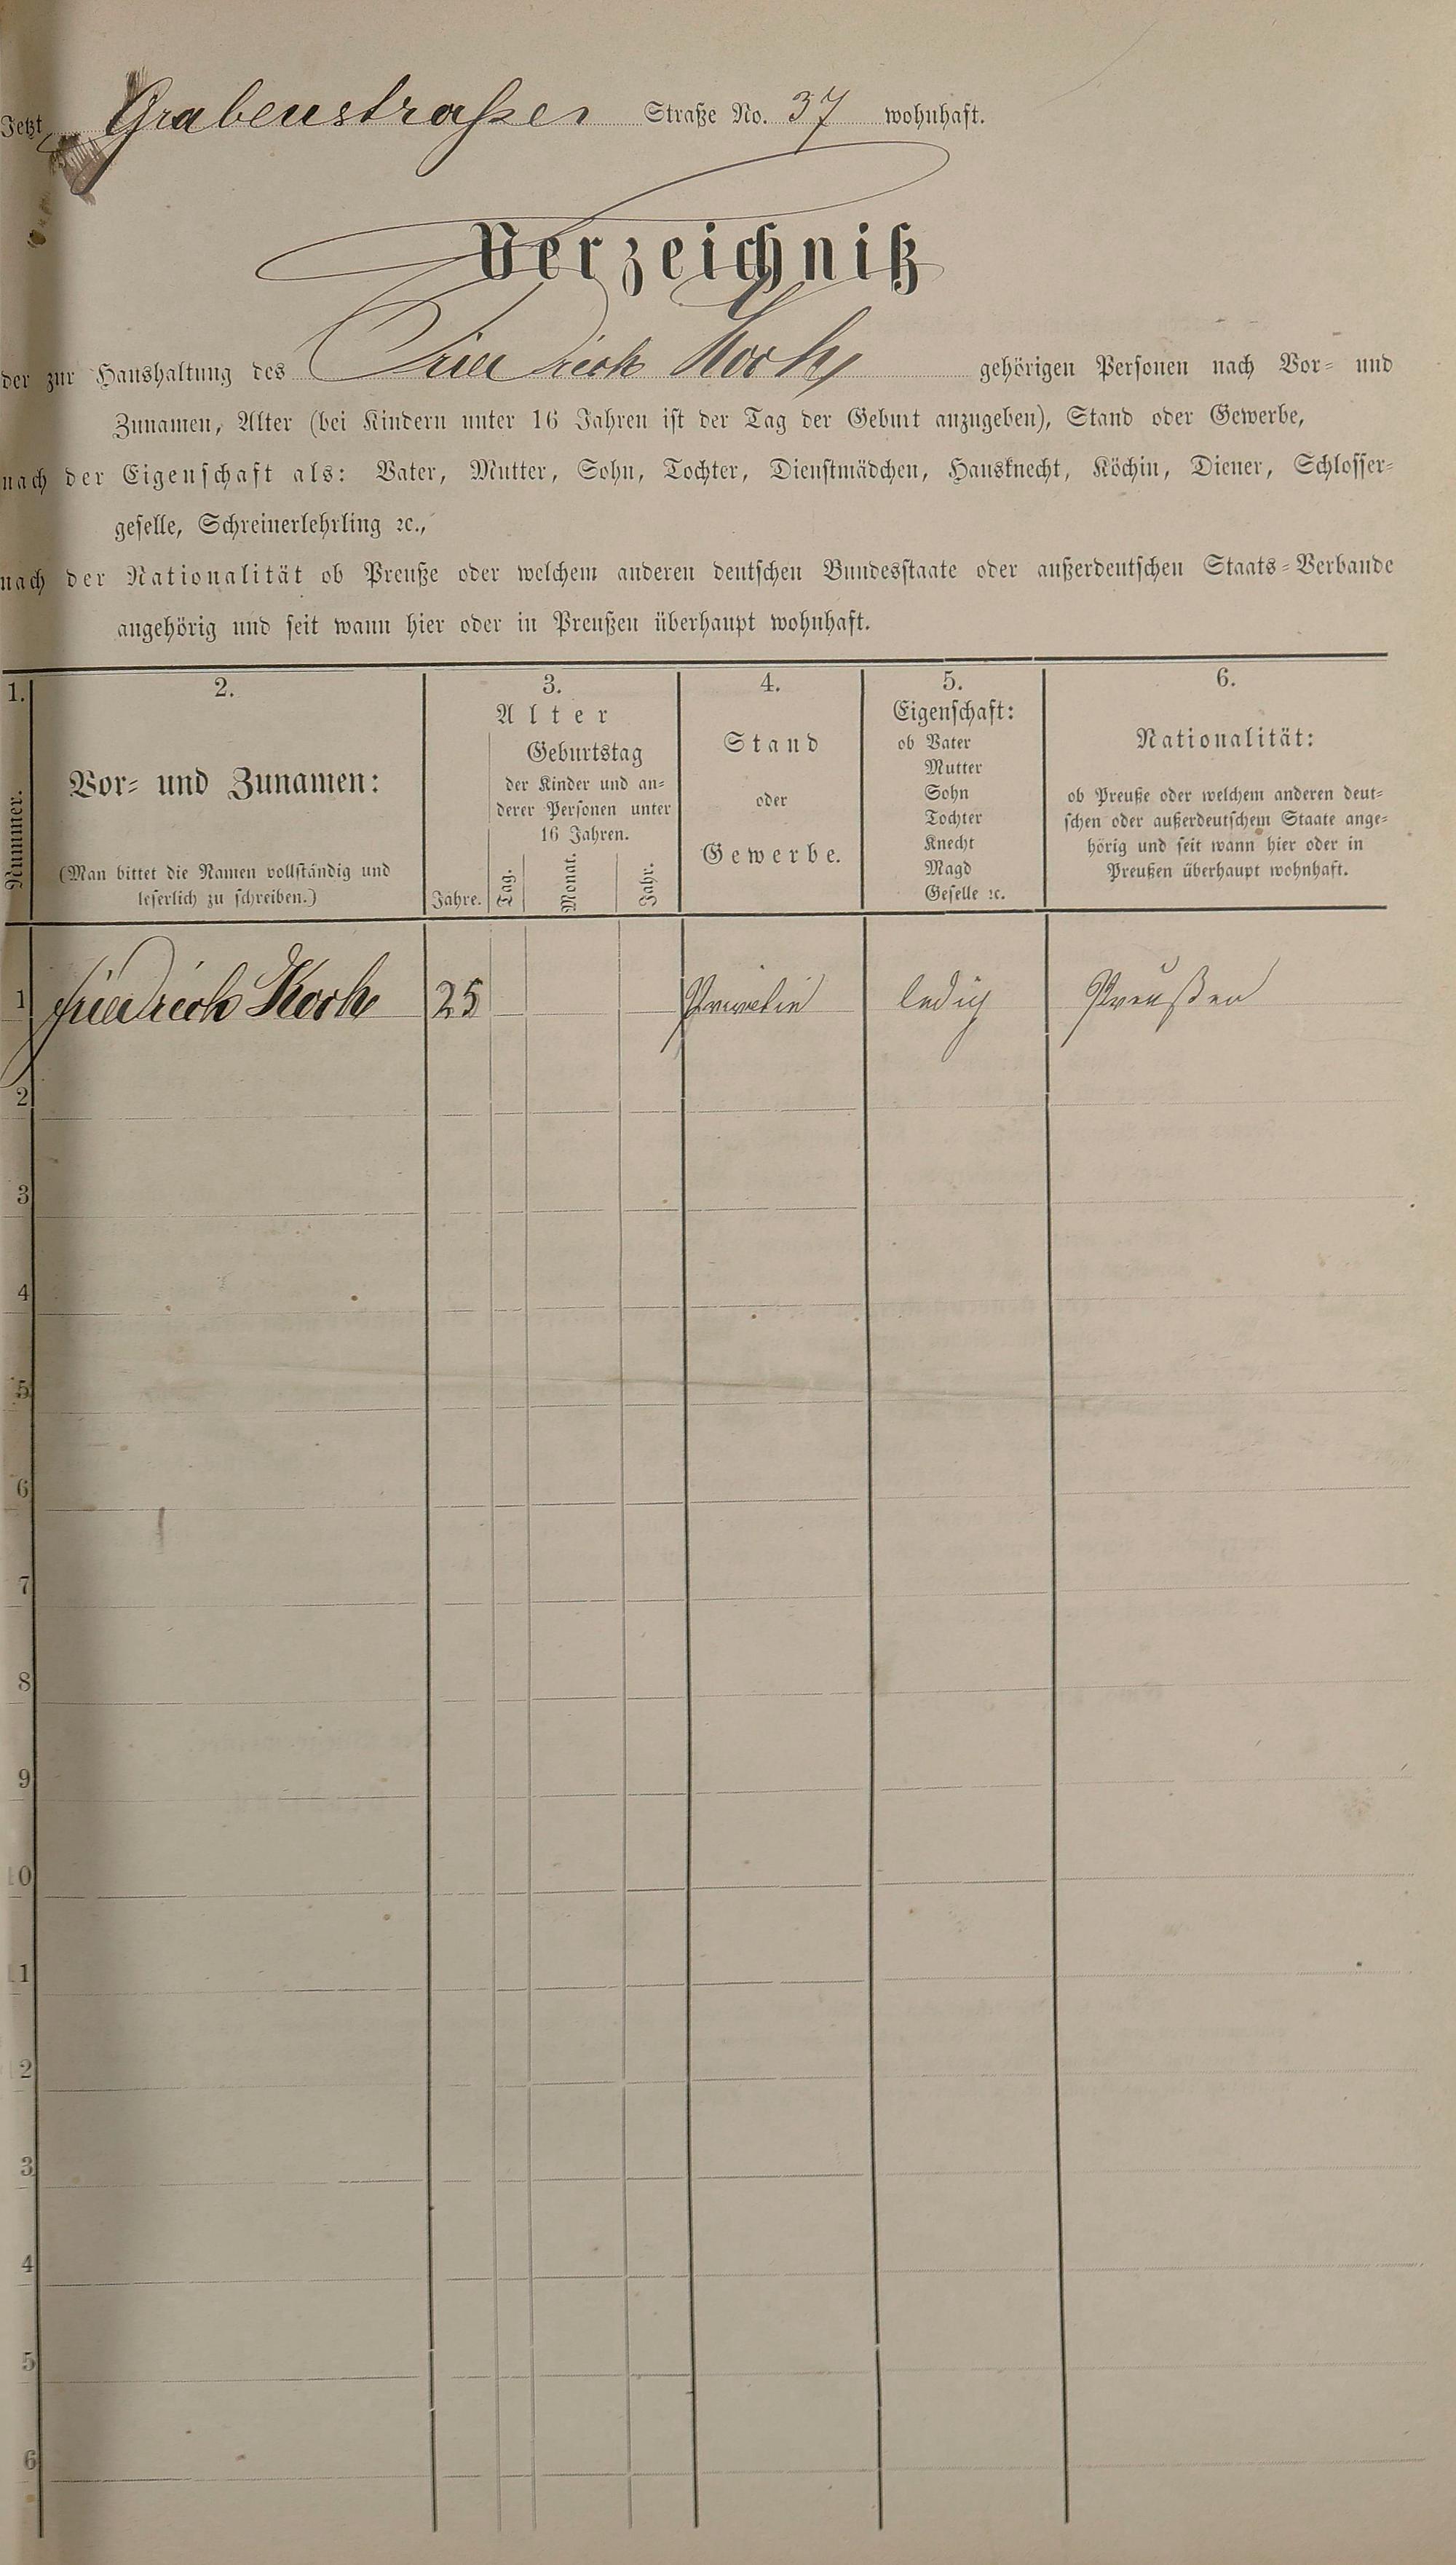 Jetzt Grabenstraßer Straße No. 37 wohnhaft.
Verzeichniß
der zur Haushaltung des Friedrich Koch gehörigen Personen nach Vor- und
Zunamen, Alter (bei Kindern unter 16 Jahren ist der Tag der Geburt anzugeben), Stand oder Gewerbe,
nach der Eigenschaft als: Vater, Mutter, Sohn, Tochter, Dienstmädchen, Hausknecht, Köchin, Diener, Schlosser-
geselle, Schreinerlehrling ꝛc.,
nach der Nationalität ob Preuße oder welchem anderen deutschen Bundesstaate oder außerdeutschen Staats-Verbande
angehörig und seit wann hier oder in Preußen überhaupt wohnhaft.
1.
Nummer.
2.
Vor- und Zunamen:
(Man bittet die Namen vollständig und
leserlich zu schreiben.)
3.
Alter
Geburtstag
der Kinder und an-
derer Personen unter
16 Jahren.
Jahre. Tag. Monat. Jahr.
4.
Stand
oder
Gewerbe.
5.
Eigenschaft:
ob Vater
Mutter
Sohn
Tochter
Knecht
Magd
Geselle ꝛc.
6.
Nationalität:
ob Preuße oder welchem anderen deut-
schen oder außerdeutschem Staate ange-
hörig und seit wann hier oder in
Preußen überhaupt wohnhaft.
1 Friedrich Koch 25 ledig Preußen
2
3
4
5
6
7
8
9
10
1
2
3
4
5
6